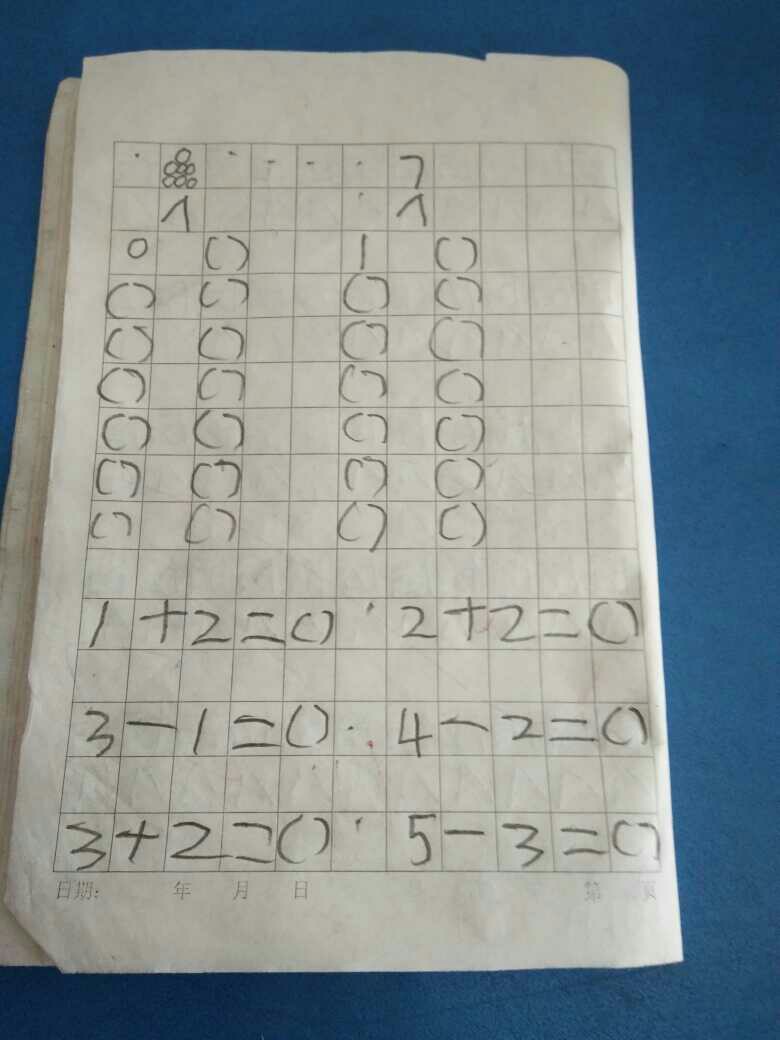 7
∧ ∧
0 () 1 ()
() () () ()
() () () ()
() () () ()
() () () ()
() () () ()
() () () ()
1+2=() 2+2=()
3-1=() 4-2=()
3+2=() 5-3=()
日期: 年 月 日 第 页